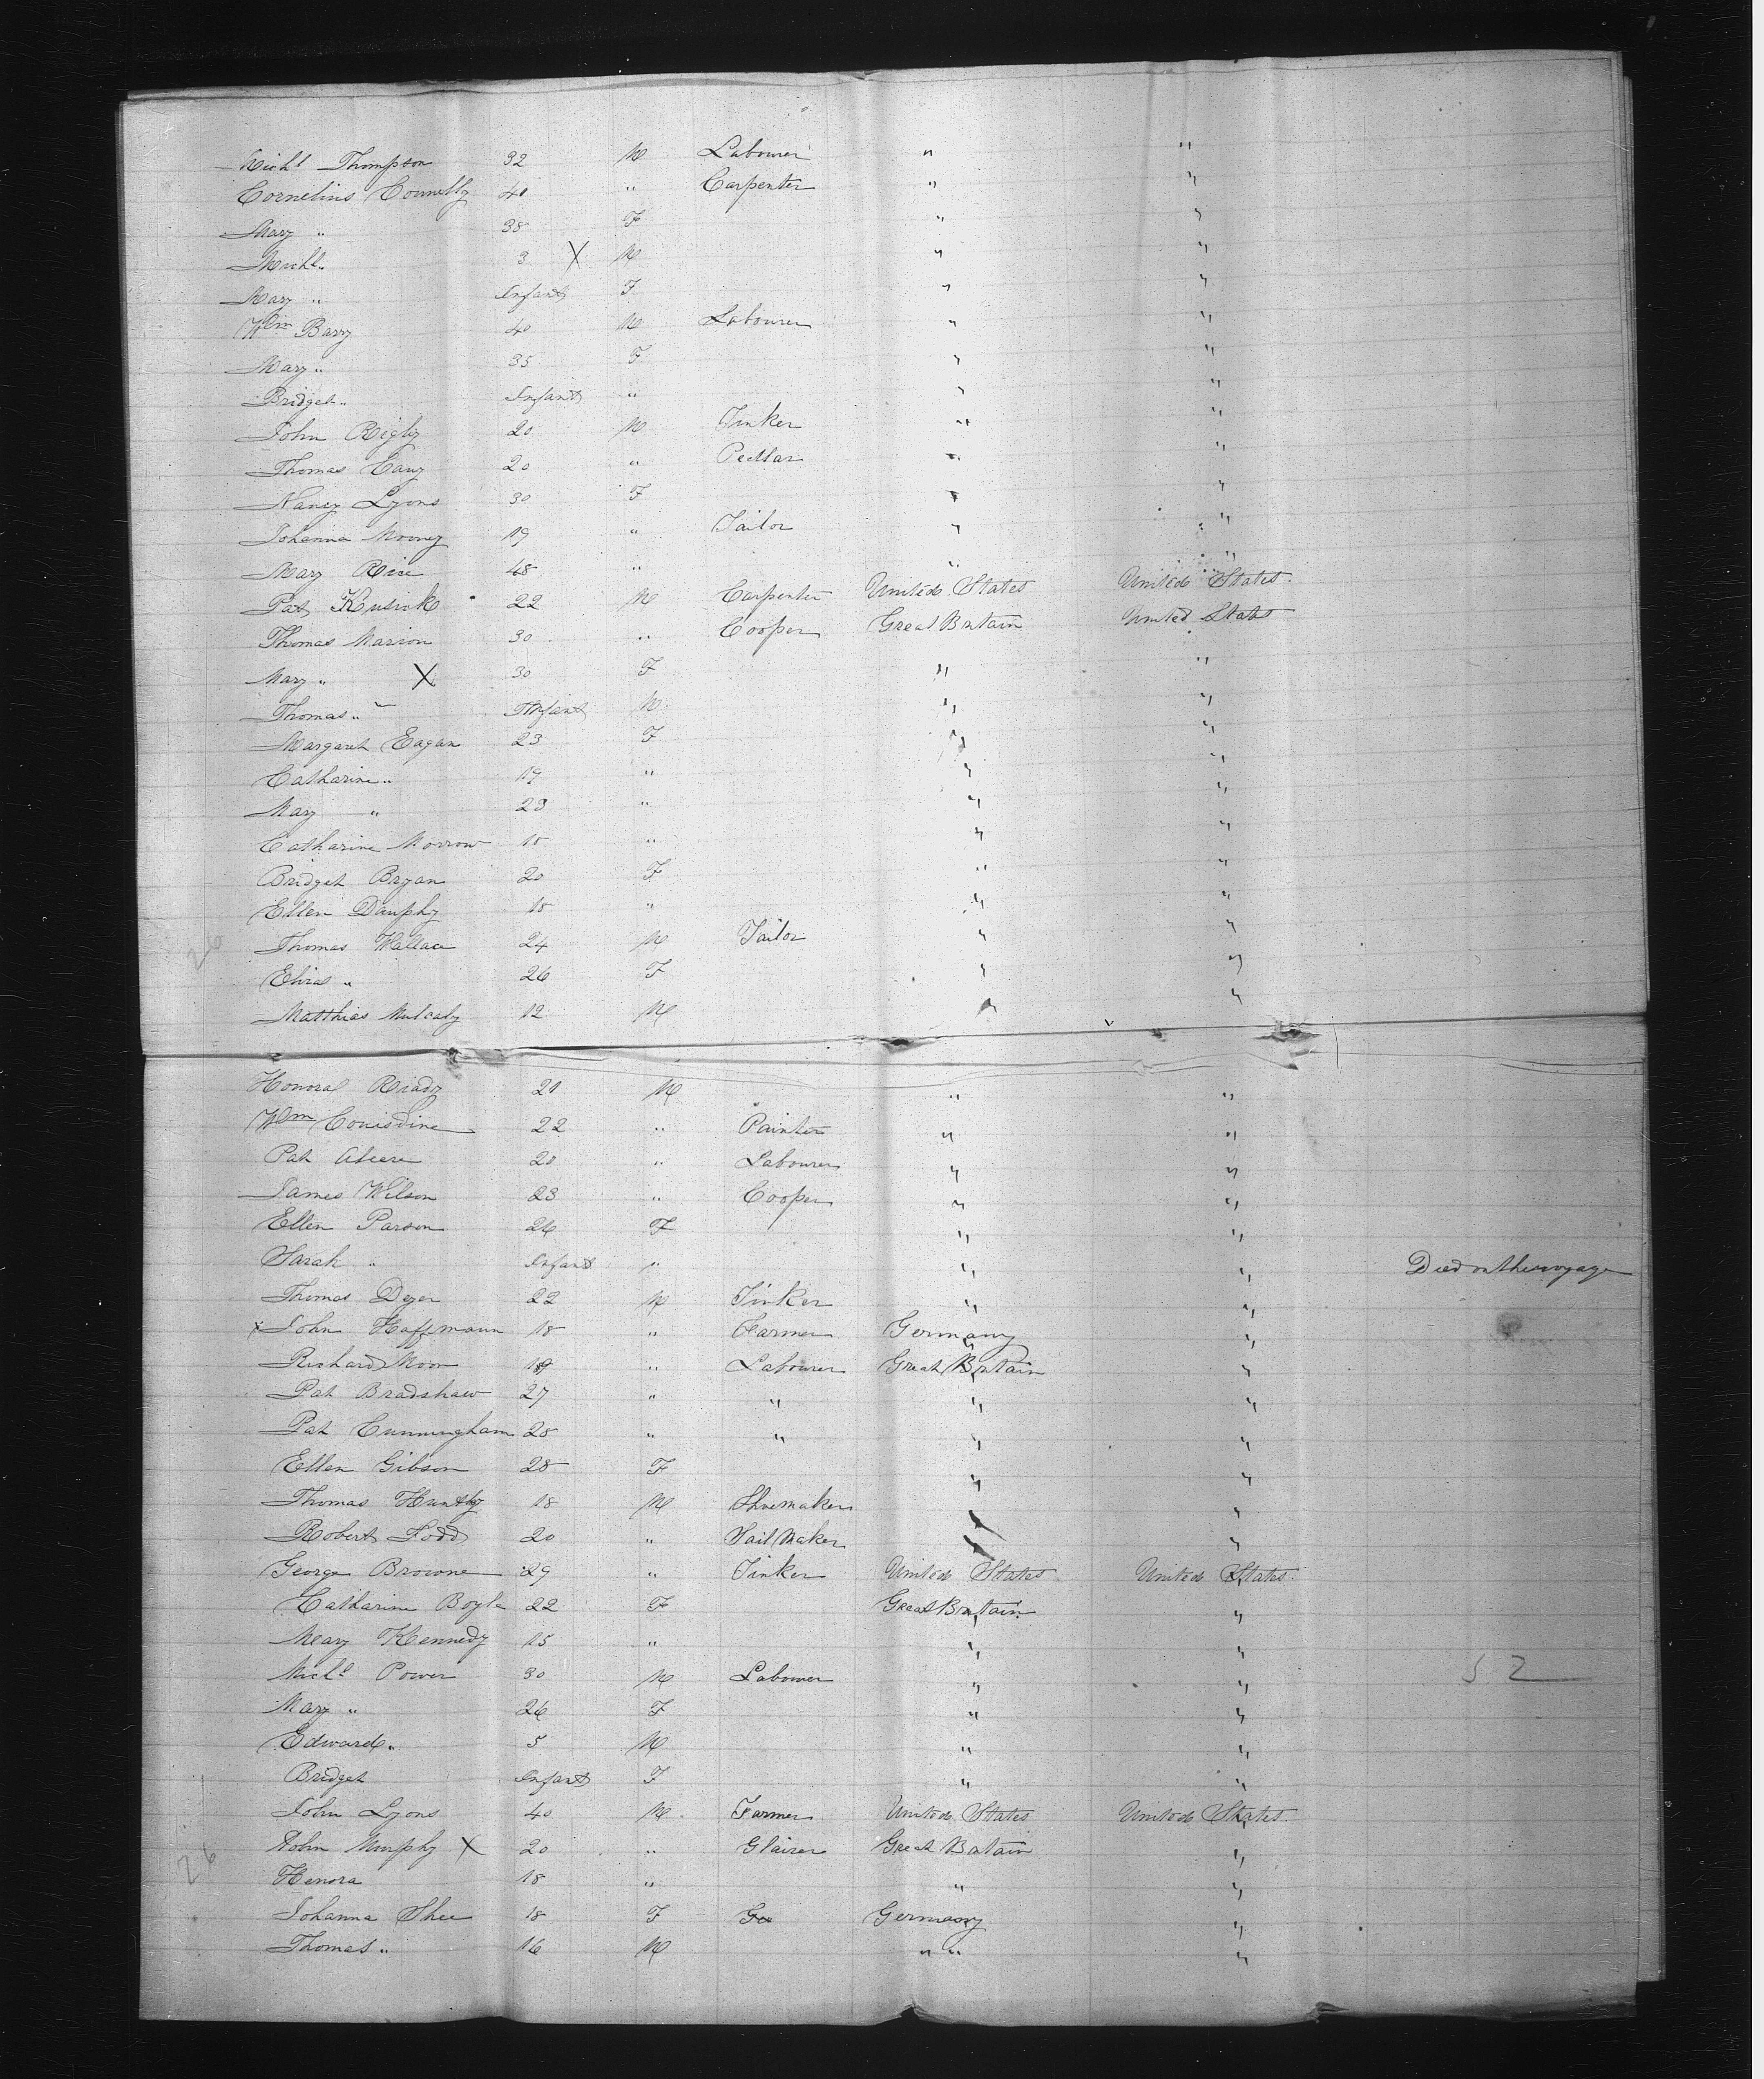 Mich<sup>l</sup> Thompson 32 M Labourer " "
Cornelius Connelly 40 " Carpenter " "
Mary " 38 F " "
Mich<sup>l</sup> " 3 X M " "
Mary " Infant F " "
W<sup>m</sup> Barry 40 M Labourer " "
Mary " 35 F " "
Bridget " Infant " " "
John Rigby 20 M Tinker " "
Thomas Cary 20 " Pedlar " "
Nancy Lyons 30 F " "
Johanna Mooney 19 " Tailor " "
Mary Rice 48 " " "
Pat Kusick 22 M Carpenter United States United States.
Thomas Marion 30 " Cooper Great Britain United States
Mary " X 30 F " "
Thomas " Infant M. " "
Margaret Eagan 23 F " "
Catharine " 19 " " "
Mary " 23 " " "
Catharine Morrow 18 " " "
Bridget Bryan 20 F " "
Ellen Dauphy 18 " " "
26 Thomas Wallace 24 M Tailor " "
Eliza " 26 F " "
Matthias Mulcahy 12 M " "
Honora Riady 21 M " "
W<sup>m</sup> Couisdine 22 " Painter " "
Pat 20 " Labourer " "
James Wilson 23 " Cooper " "
Ellen Parson 26 F " "
Sarah " Infant " " " Died on the voyage
Thomas Dyer 22 M Tinker " "
x John Haffmann 18 " Farmer Germany "
Richard Moon 18 " Labourer Great Britain "
Pat Bradshaw 27 " " " "
Pat Cunningham 28 " " " "
Ellen Gibson 28 F " "
Thomas Huntly 18 M Shoemaker " "
Robert Todd 20 " Sail Maker " "
George Browne 29 " Tinker United States United States.
Catharine Boyle 22 F Great Britain "
Meary Kennedy 15 " " "
Mich<sup>l</sup> Power 30 M Labourer " " 52
Mary " 26 F " "
Edward " 5 M " "
Bridget Infant F " "
John Lyons 40 M. Farmer United States United States.
26 John Murphy X 20 " Glaizer Great Britain "
Henora 18 " " "
Johanna Shee 18 F Germany "
Thomas " 16 M " " "